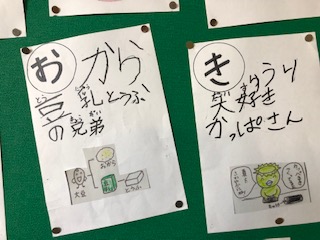 お から
豆乳とうふ
の兄弟
おから
大豆
とうふ
き ゅうり
大好き
かっぱさん